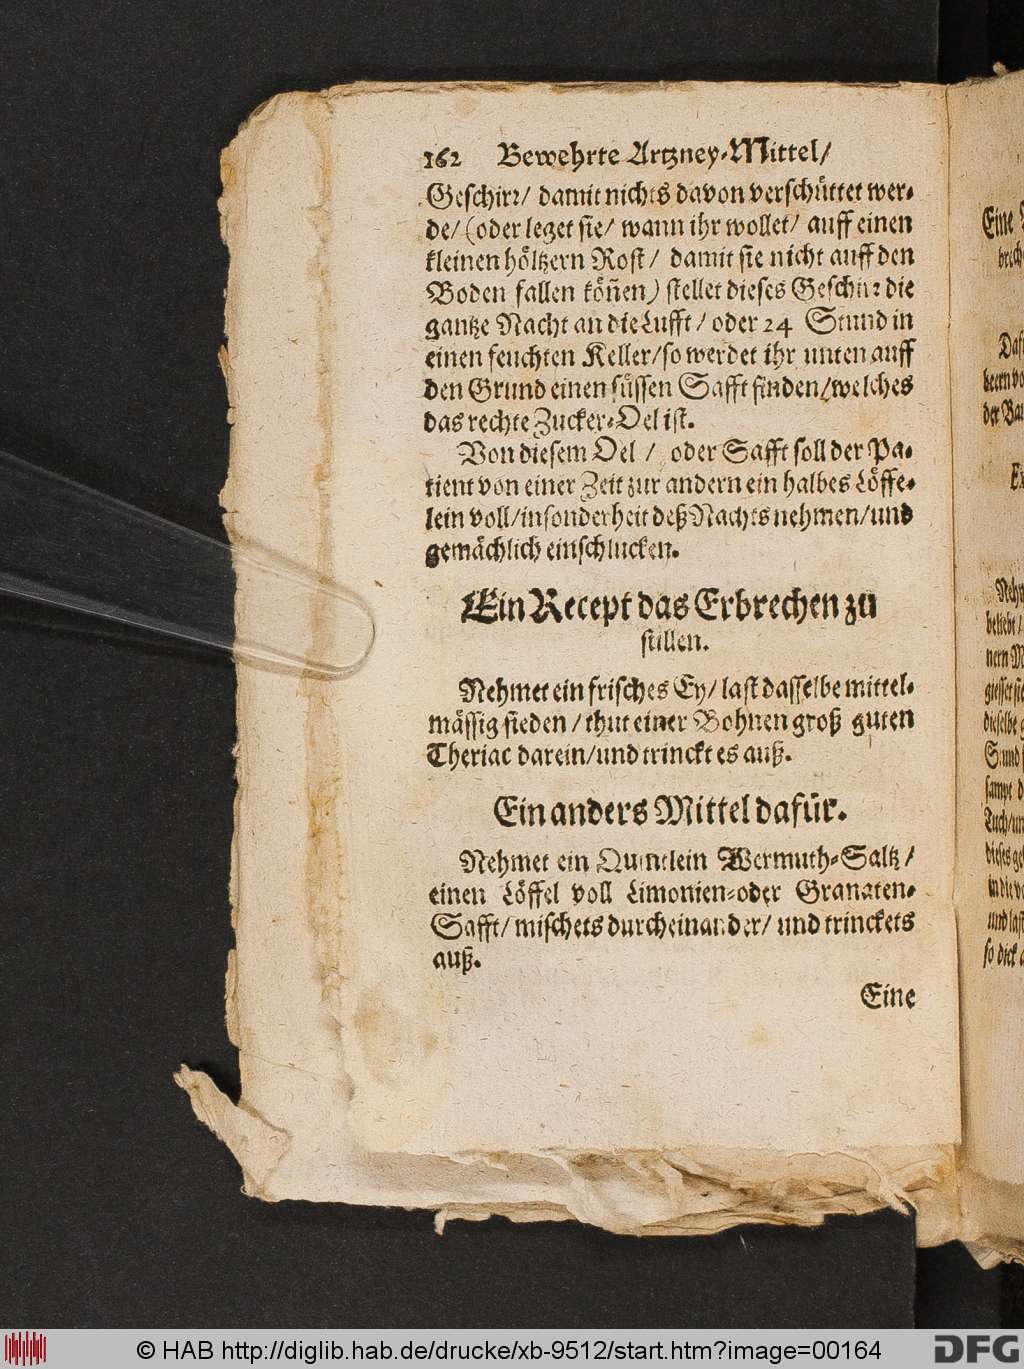 162 Bewehrte Artzney-Mittel/
Geschirr/ damit nichts davon verschüttet wer-
de/ (oder leget sie/ wann ihr wollet/ auff einen
kleinen höltzern Rost/ damit sie nicht auff den
Boden fallen köñen) stellet dieses Geschirr die
gantze Nacht an die Lufft/ oder 24 Stund in
einen feuchten Keller/ so werdet ihr unten auff
den Grund einen süssen Safft finden/ welches
das rechte Zucker-Oel ist.
Von diesem Oel/ oder Safft soll der Pa-
tient von einer Zeit zur andern ein halbes Löffe-
lein voll/ insonderheit deß Nachts nehmen/ und
gemächlich einschlucken.
Ein Recept das Erbrechen zu
stillen.
Nehmet ein frisches Ey/ last dasselbe mittel-
mässig sieden/ thut einer Bohnen groß guten
Theriac darein/ und trinckt es auß.
Ein anders Mittel dafür.
Nehmet ein Quintlein Wermuth-Saltz/
einen Löffel voll Limonien-oder Granaten-
Safft/ mischets durcheinander/ und trinckets
auß.
Eine
Eine
brech
Daß
beern vo
der Bau
Nehm
beliebt/
nern M
giesset sie
dieselbe g
Stund
sampt d
Tuch/ un
dieses ge
in die vo
und last
so dick a
© HAB http://diglib.hab.de/drucke/xb-9512/start.htm?image=00164
DFG